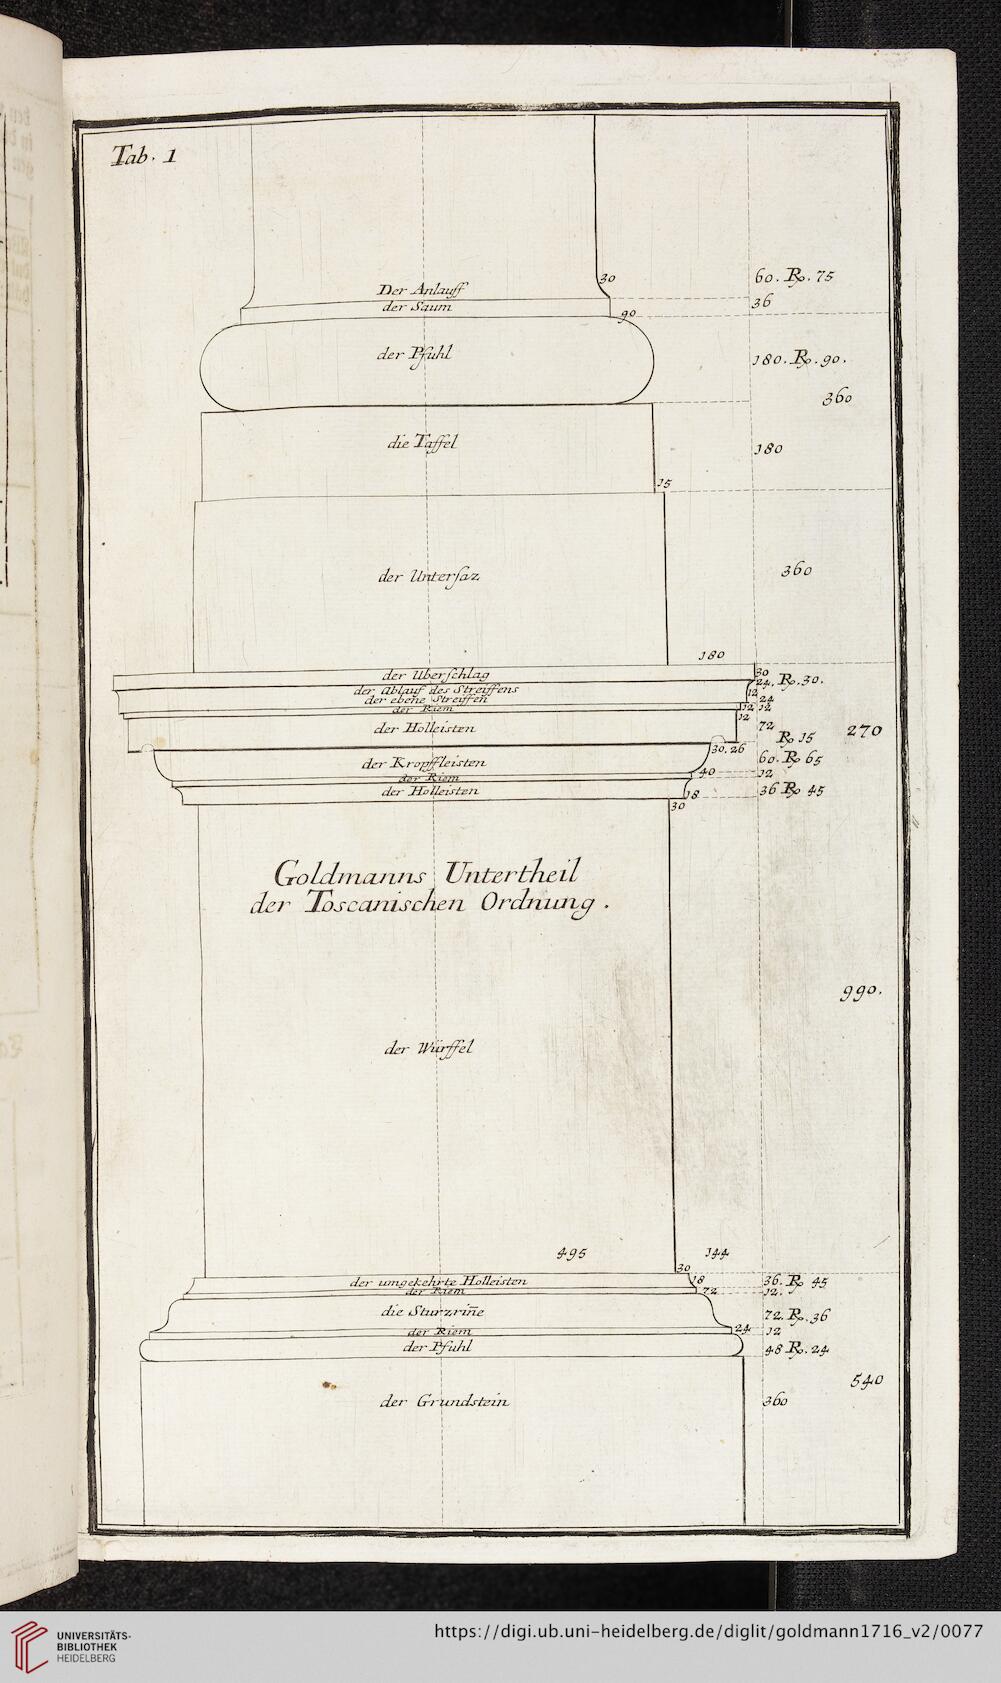 Tab. 1
30
60. R. 75
Der Anlauff
der Saum
36
90
der Pfuhl
180. R. 90.
360
die Taffel
180
15
der Untersaz
360
180
der Uberschlag
30
der Ablauf des Streiffens
24. R. 30.
12
der ebene Streiffen
24
der Riem
12 12
12
der Holleisten
72
270
R 15
30. 26
der Kropffleisten
60. R 65
40
der Riem
12
der Holleisten
18
36 R 45
30
Goldmanns Untertheil
der Toscanischen Ordnung.
990.
der Würffel
495
144
30
der umgekehrte Holleisten
18
36. R 45
der Riem
72
12.
die Sturzriñe
72. R. 36
der Riem
24
12
der Pfuhl
48 R. 24
540
der Grundstein
360
UNIVERSITÄTS-
BIBLIOTHEK
HEIDELBERG
https://digi.ub.uni-heidelberg.de/diglit/goldmann1716_v2/0077